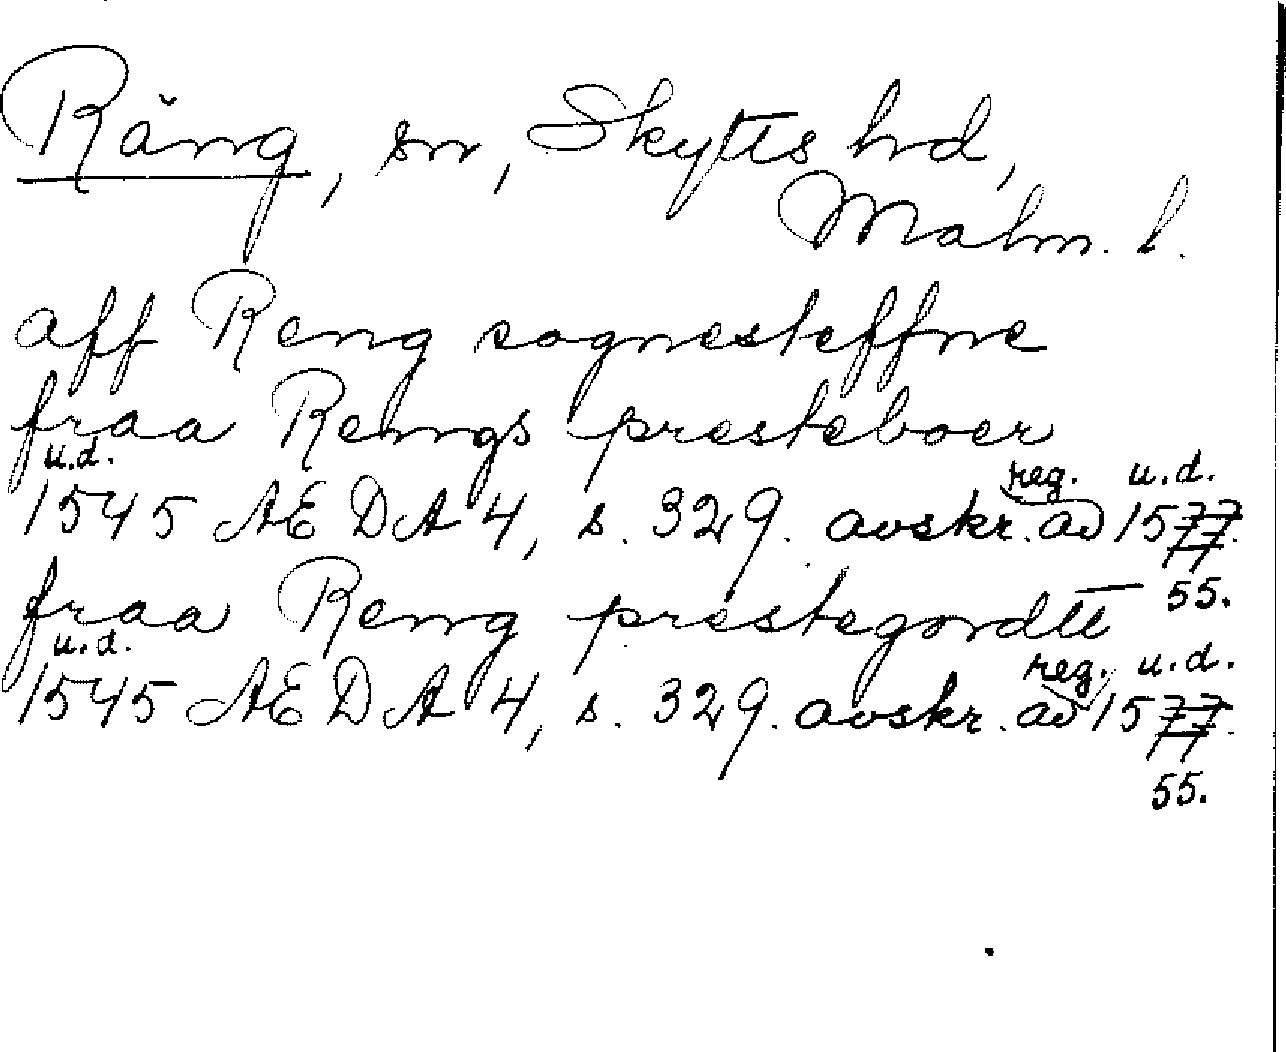 Räng, sn, Skytts hd,
Malm. l.
aff Reng sognesteffne
fraa Rengs presteboer
u.d. reg. u.d.
1545 AEDA 4, s. 329. avskr. av 1577.
55.
fraa Reng prestegordtt
u.d. reg. u.d.
1545 AEDA 4, s. 329. avskr. av 1577.
55.